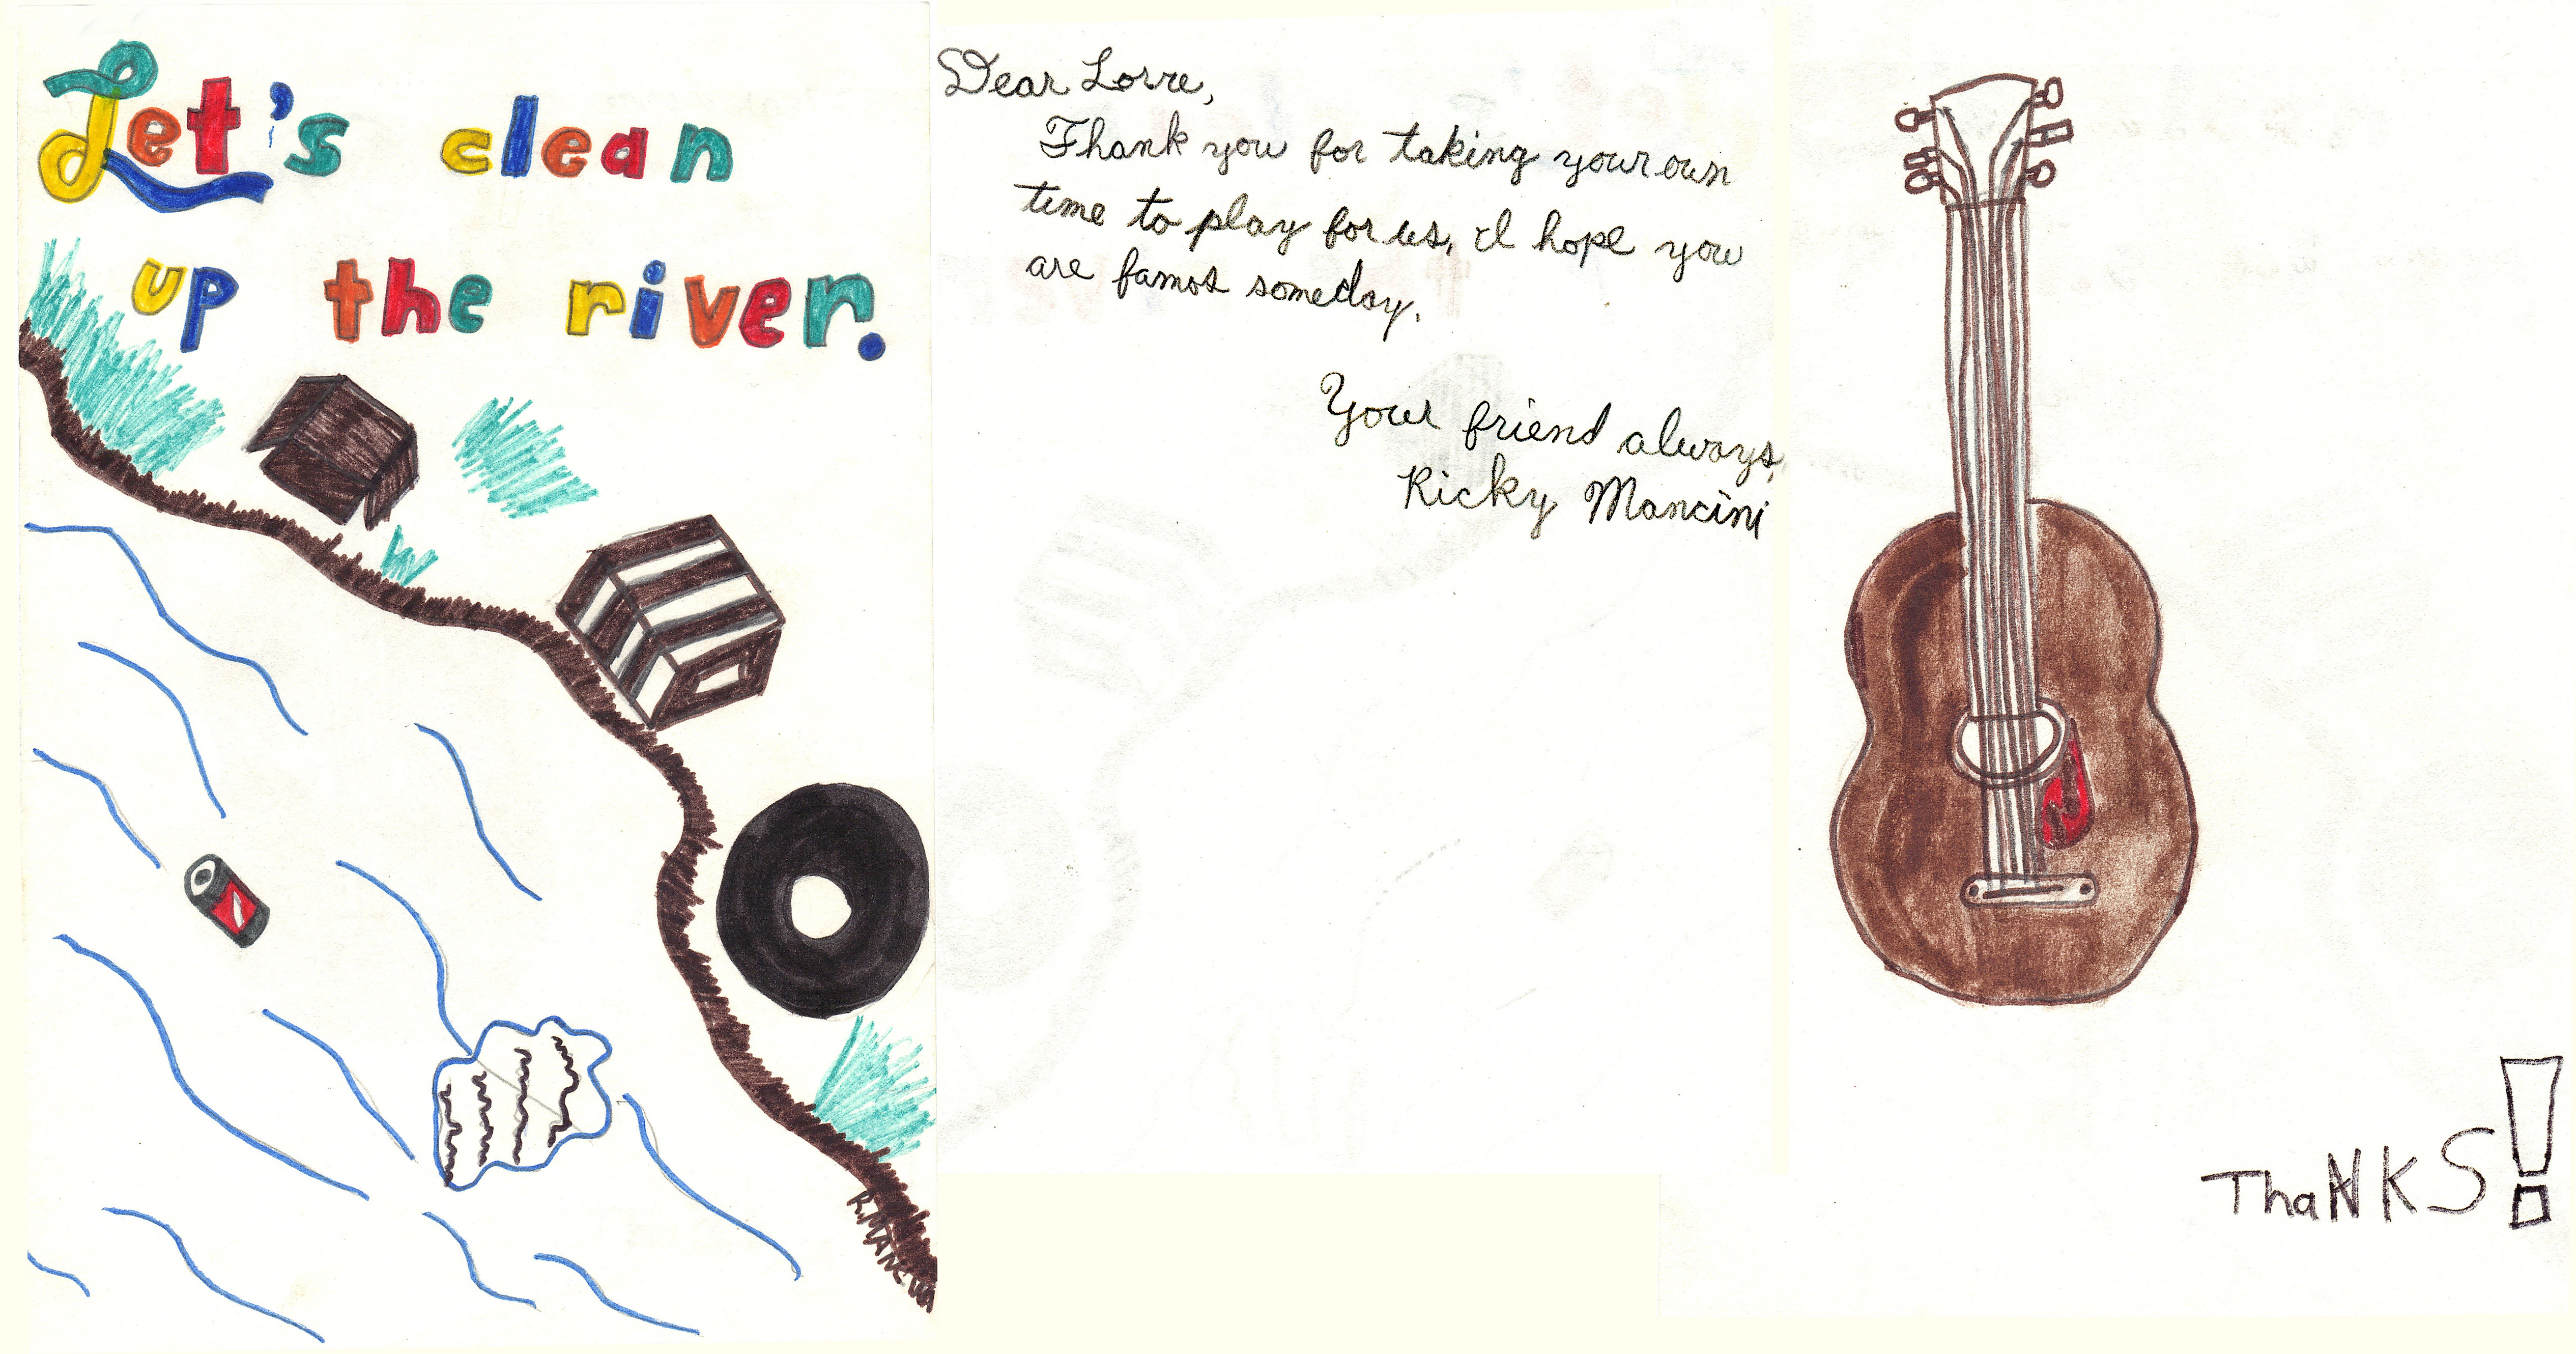 Let's clean
up the river.
R. MANCINI
Dear Lorre,
Thank you for taking your own
time to play for us, I hope you
are famos someday.
Your friend always,
Ricky Mancini
ThaNKS!